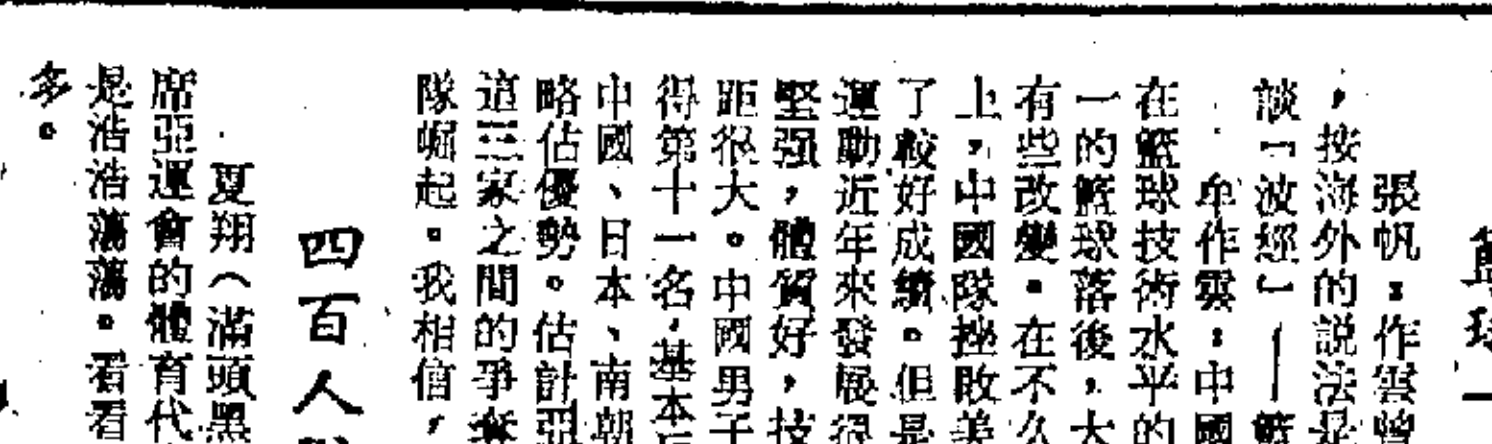 籃球
張帆：作雲曾
，按海外的説法是
談「波經」——籃
牟作雲：中國
在籃球技術水平的
一的籃球落後，大
有些改變。在不久
上，中國隊挫敗美
了較好成績。但是
運動近年來發展很
堅强，體質好，技
距很大。中國男子
得第十一名，基本
中國、日本、南朝
略佔優勢。估計亞
這三家之間的爭奪
隊崛起。我相信，
四百人
夏翔（滿頭黑
席亞運會的體育代
是浩浩蕩蕩。看看
多。